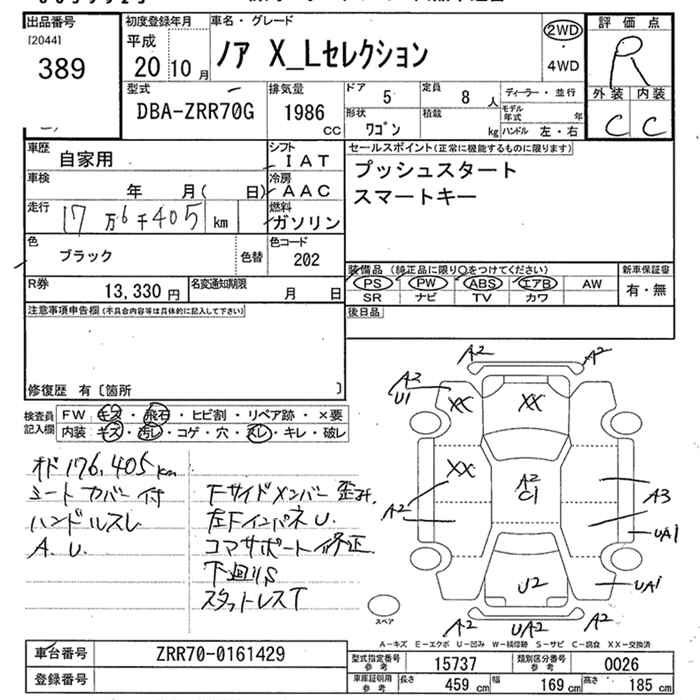 出品番号
[2044]
389
初度登録年月
平成
20 10月
車名・グレード
ノア X_Lセレクション
2WD
4WD
評価点
R
外装 内装
C C
型式
DBA-ZRR70G
排気量
1986
cc
ドア
5
定員
8 人
形状
ワゴン
積載
kg
ディーラー・並行
モデル年式 年
ハンドル 左・右
車歴
自家用
シフト
IAT
車検
年 月( 日)
冷房
AAC
走行
17万6千405 km
燃料
ガソリン
色
ブラック
色替
色コード
202
R券
13,330 円
名変通知期限
月 日
セールスポイント(正常に機能するものに限ります)
プッシュスタート
スマートキー
装備品 (純正品に限り○をつけてください)
PS PW ABS エアB AW
SR ナビ TV カワ
新車保証書
有・無
後日品
注意事項申告欄(不具合内容等は具体的に記入して下さい)
修復歴 有〔箇所 〕
検査員記入欄
FW キズ・飛石・ヒビ割・リペア跡・×要
内装 キズ・汚レ・コゲ・穴・スレ・キレ・破レ
オド176,405km
シートカバー付
ハンドルスレ
A.U.
下サイドメンバー歪み
左Fインパネ U.
コアサポート修正
下廻りS
スタッドレスT
A2 A2
A2
U1
XX XX
XX
A2
C1
A2
A3
UA1
U2
UA1
A2 UA2 A2
スペア
A-キズ E-エクボ U-凹み W-補修跡 S-サビ C-腐食 XX-交換済
車台番号
ZRR70-0161429
登録番号
型式指定番号 参考
15737
類別区分番号 参考
0026
車庫証明用 参考
長さ 459 cm
幅 169 cm
高さ 185 cm